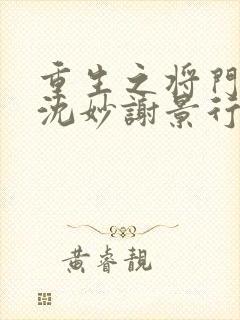 重生之将門
沈妙謝景行
黃睿靚